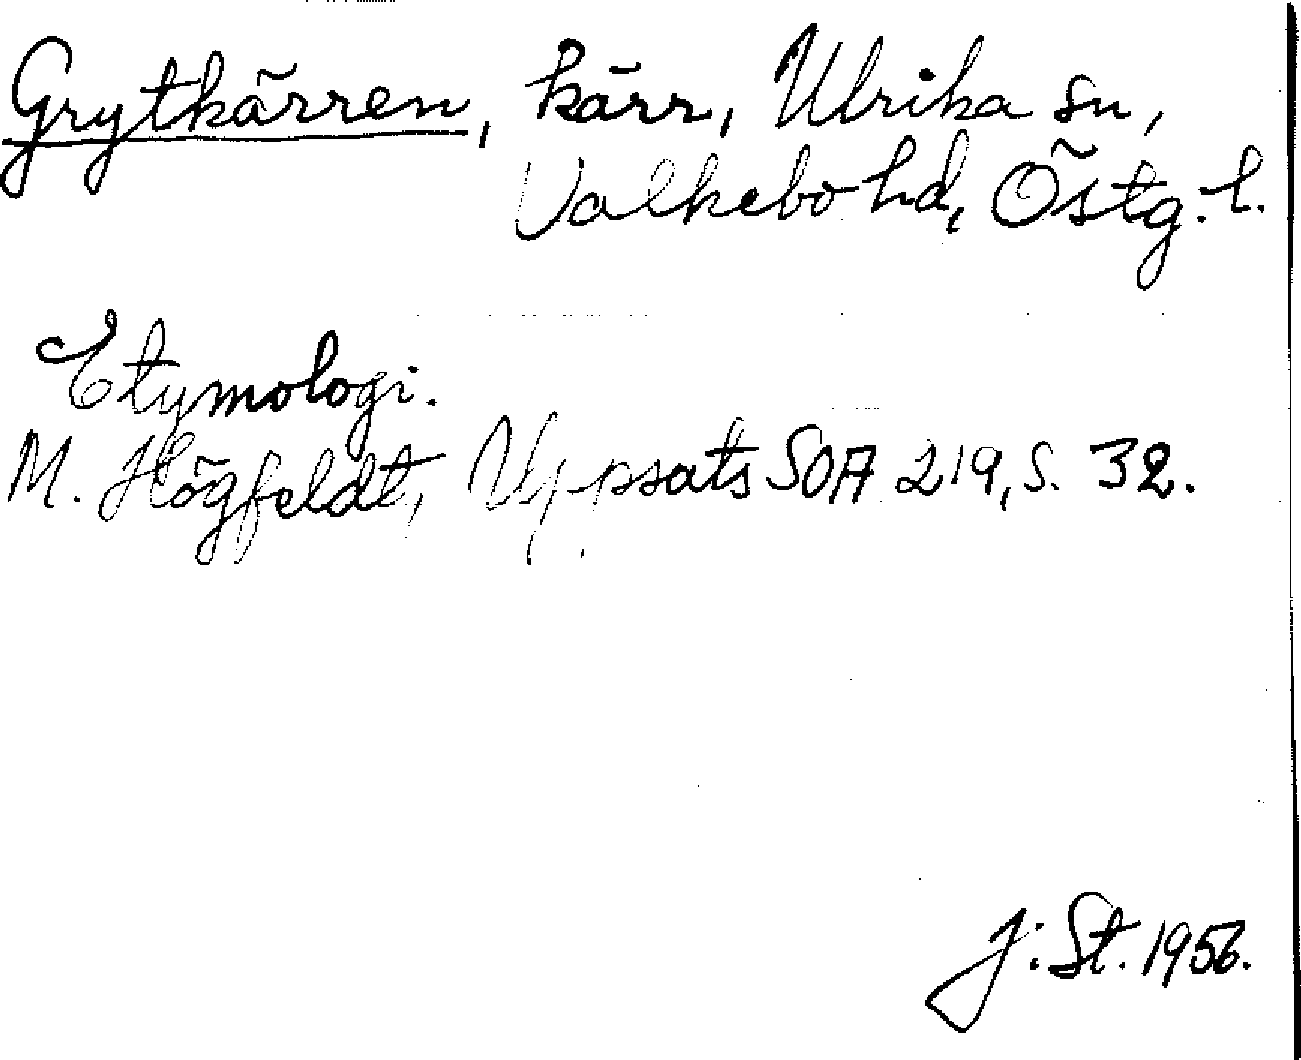 Grytkärren, kärr, Ulrika sn,
Valkebo hd, Östg. l.
Etymologi.
M. Högfeldt, Uppsats SOA 219, s. 32.
J. St. 1956.